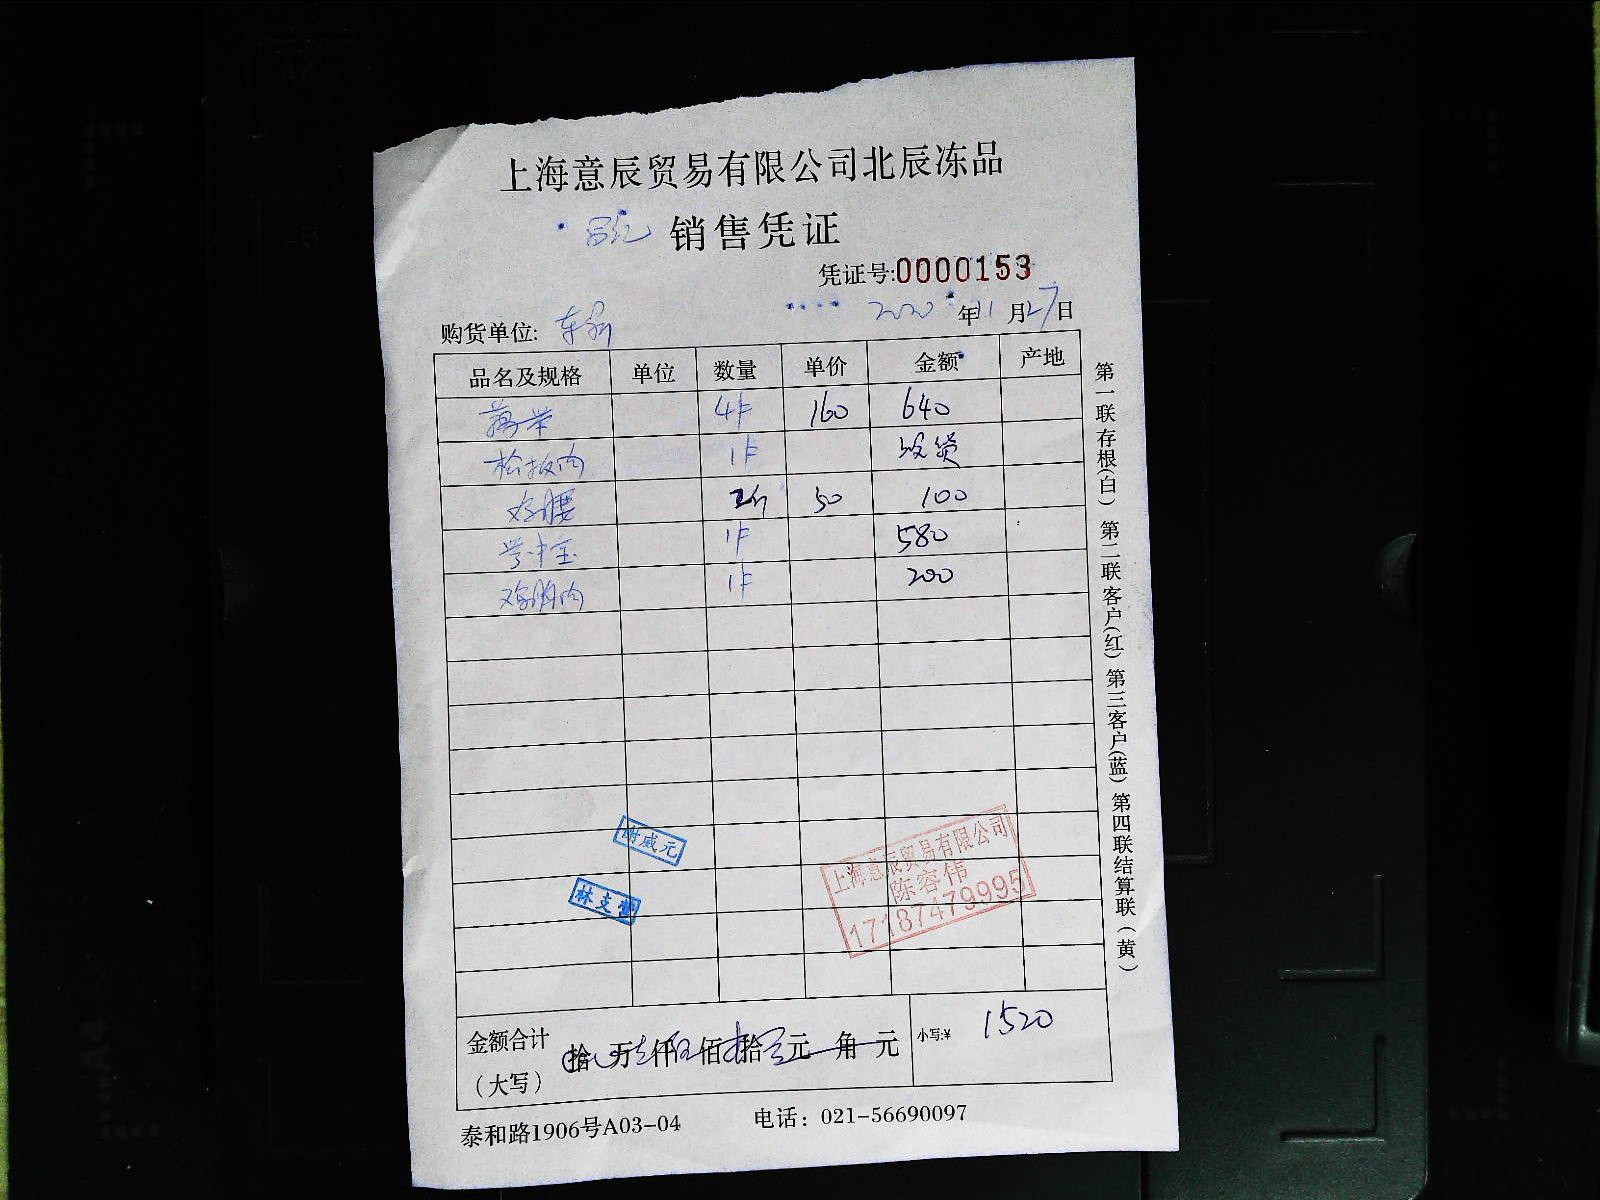 上海意辰贸易有限公司北辰冻品
销售凭证
凭证号:0000153
2020 年 11 月 27 日
购货单位:
品名及规格 单位 数量 单价 金额 产地
4件 160 640
松板肉 1件
鸡腰 2斤 50 100
1件 580
鸡胸肉 1件 200
谢威元
林支
上海意辰贸易有限公司
陈容伟
17187479995
金额合计
(大写)
拾 万 仟 佰 拾 元 角 元
小写:¥ 1520
泰和路1906号A03-04 电话: 021-56690097
第一联存根(白) 第二联客户(红) 第三客户(蓝) 第四联结算联(黄)